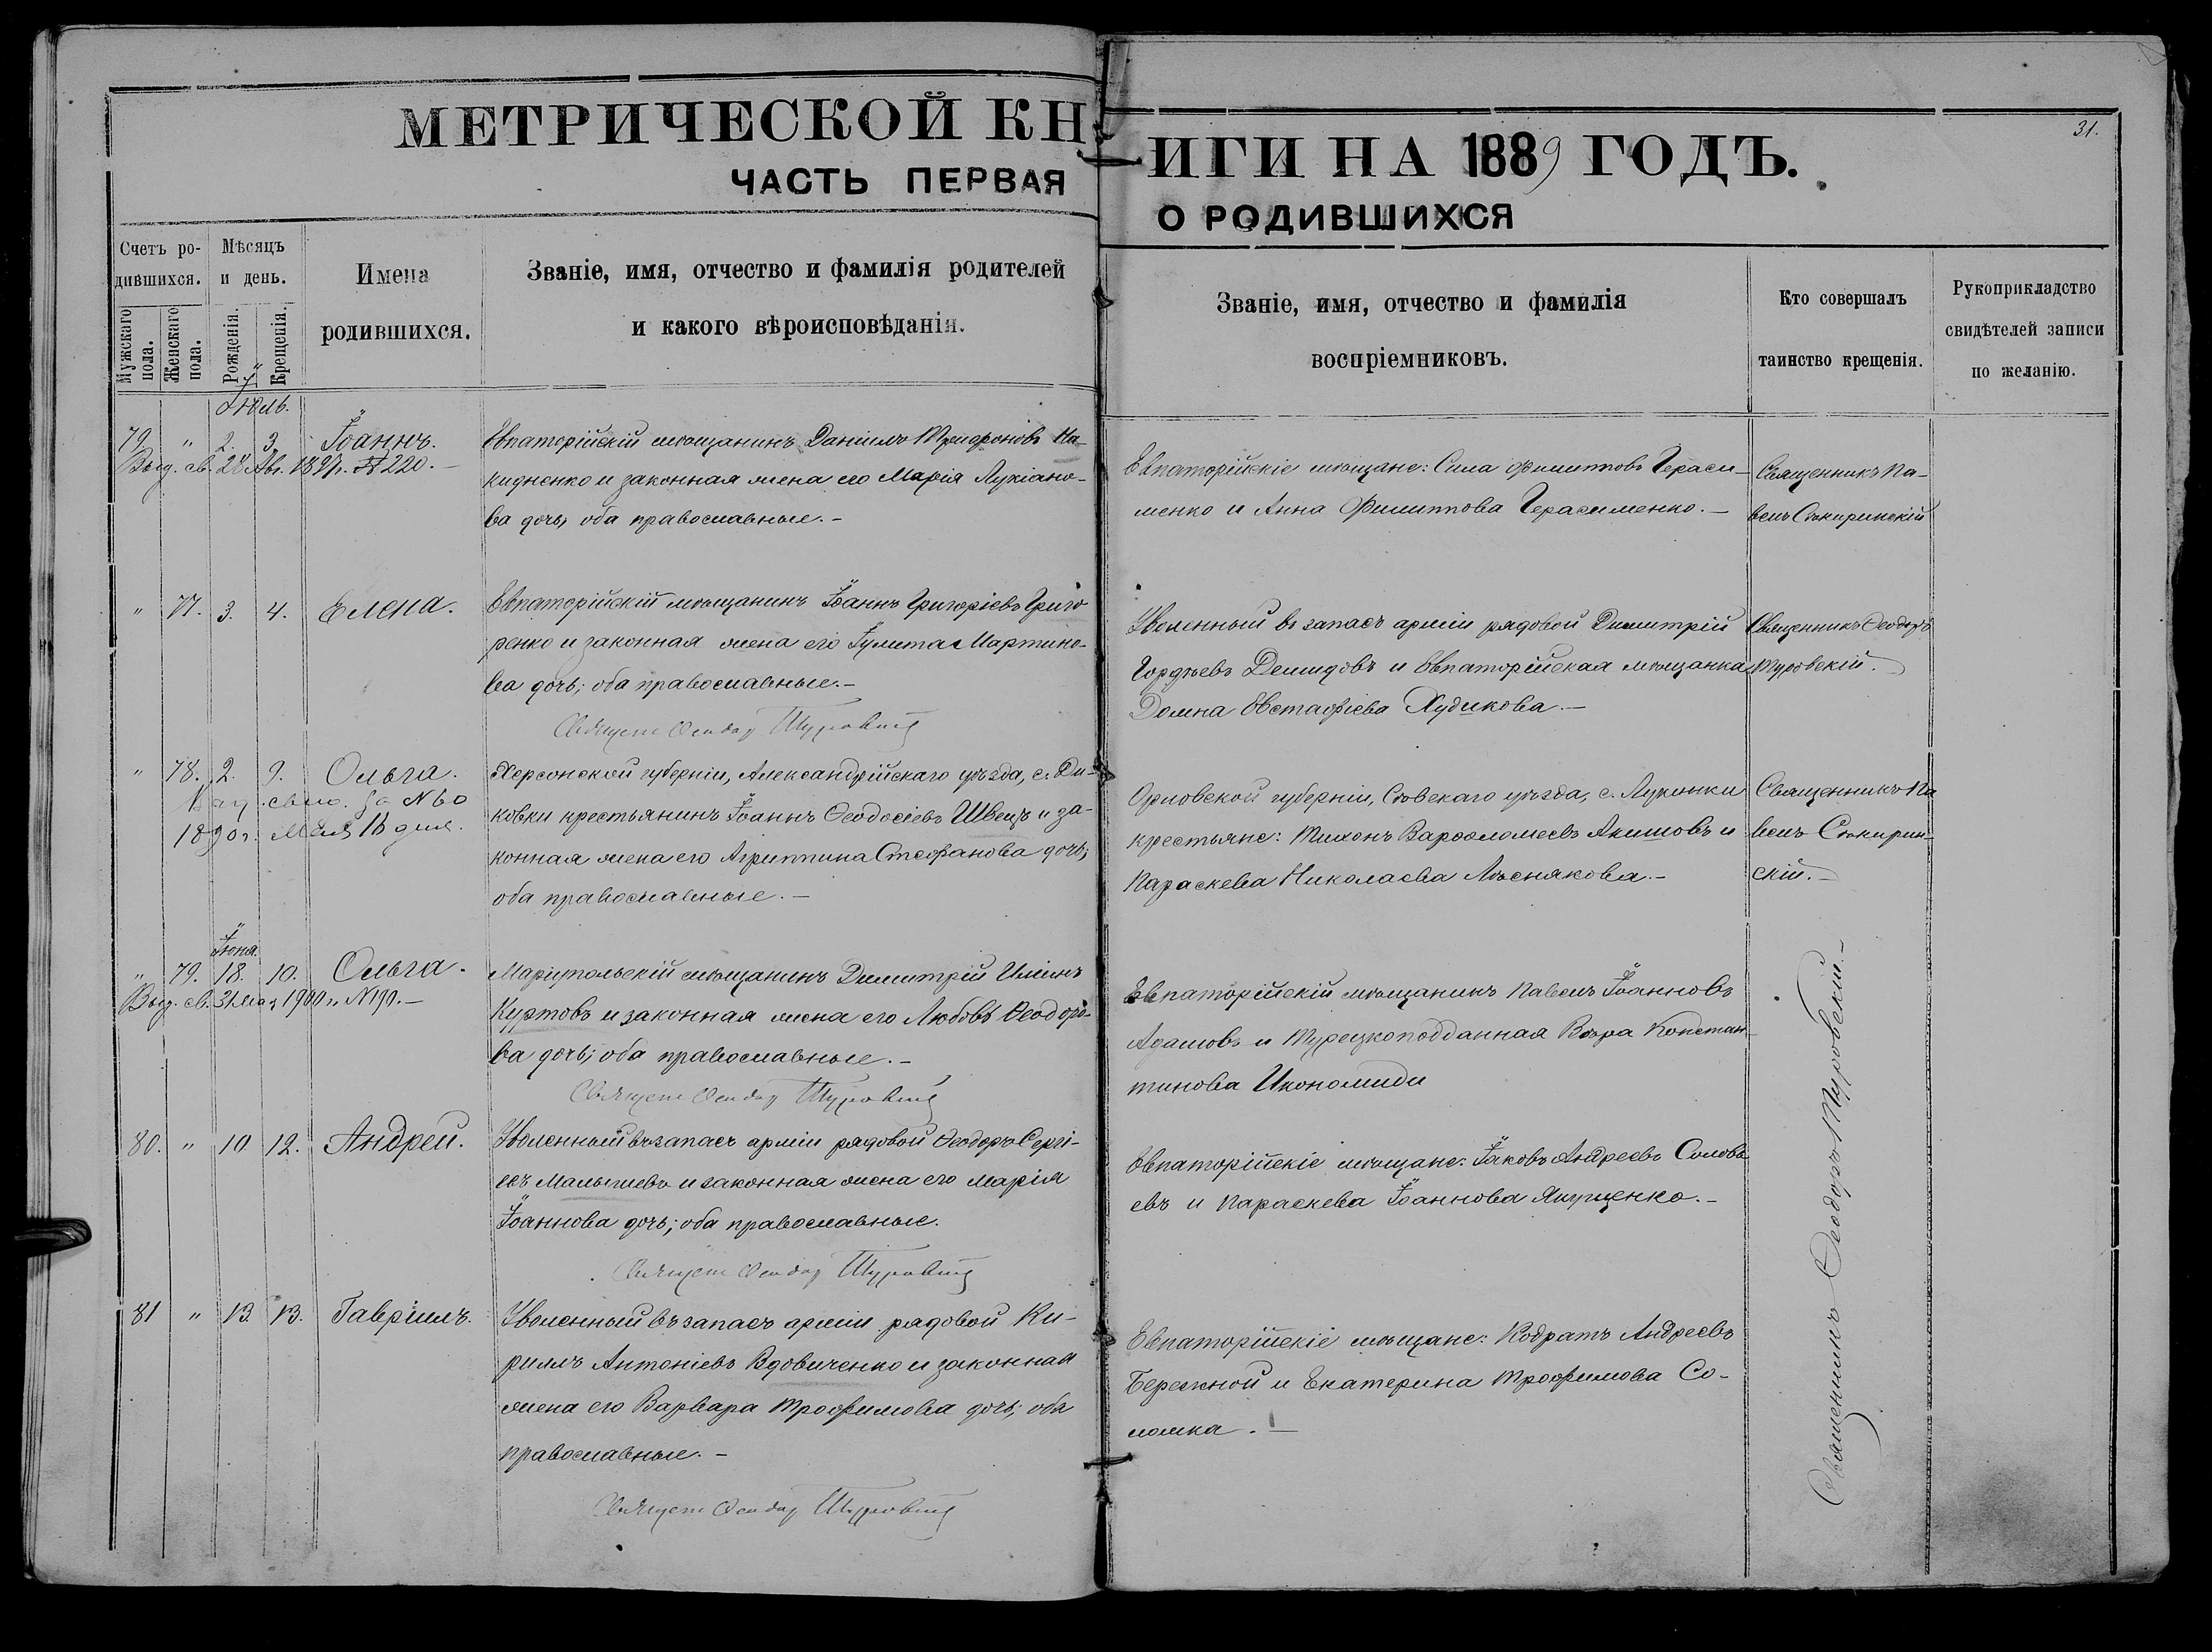 МЕТРИЧЕСКОЙ КН
ИГИ НА 1889 ГОДЪ.
31.
ЧАСТЬ ПЕРВАЯ
О РОДИВШИХСЯ
Счетъ ро-
дившихся.
Мужскаго
пола.
Женскаго
пола.
Мѣсяцъ
и день.
Рожденія.
Крещенія.
Имена
родившихся.
Званіе, имя, отчество и фамилія родителей
и какого вѣроисповѣданія.
Званіе, имя, отчество и фамилія
воспріемниковъ.
Кто совершалъ
таинство крещенія.
Рукоприкладство
свидѣтелей записи
по желанію.
Іюль.
79. " 2. 3. Іоаннъ.
Выд. св. 24 Авг. 1897г. № 220.-
Евпаторійскій мѣщанинъ Даніилъ Трифоновъ На-
кидненко и законная жена его Марія Лукіано-
ва дочь, оба православные.-
Евпаторійскіе мѣщане: Сила Филипповъ Гераси-
менко и Анна Филиппова Герасименко.-
Священникъ Па-
велъ Сѣкиринскій
" 77. 3. 4. Елена.
Евпаторійскій мѣщанинъ Іоаннъ Григоріевъ Григо
ренко и законная жена его Іулита Мартино-
ва дочь; оба православные.-
Священ Ѳеодор Туровскій
Уволенный въ запасъ арміи рядовой Димитрій
Гордѣевъ Демидовъ и Евпаторійская мѣщанка
Домна Евстафіева Худикова.-
Священникъ Ѳеодоръ
Туровскій.
" 78. 2. 9. Ольга.
Выд. свид. за №60
1890г. Мая 16 дня.
Херсонской губерніи, Александрійскаго уѣзда, с. Ди-
ковки крестьянинъ Іоаннъ Ѳеодосіевъ Швецъ и за-
конная жена его Агриппина Стефанова дочь;
оба православные.-
Орловской губерніи, Сѣвскаго уѣзда, с. Лукинки
крестьяне: Тихонъ Варфоломеевъ Акишовъ и
Параскева Николаева Лѣснякова.-
Священникъ Па
велъ Сѣкирин-
скій.-
Іюня
" 79. 18. 10. Ольга.
Выд. св. 31 мая 1900г. №190.-
Маріупольскій мѣщанинъ Димитрій Ильинъ
Куртовъ и законная жена его Любовь Ѳеодоро-
ва дочь; оба православные.-
Священ Ѳеодор Туровскій
Евпаторійскій мѣщанинъ Павелъ Іоанновъ
Адамовъ и Турецкоподданная Вѣра Констан-
тинова Икономиди
Священникъ Ѳеодоръ Туровскій.-
80. " 10 12. Андрей.
Уволенный въ запасъ арміи рядовой Ѳеодоръ Сергі-
евъ Малышевъ и законная жена его Марія
Іоаннова дочь; оба православные.
Священ Ѳеодор Туровскій
Евпаторійскіе мѣщане: Іаковъ Андреевъ Соловь
евъ и Параскева Іоаннова Якущенко.-
81 " 13. 13. Гавріилъ.
Уволенный въ запасъ арміи рядовой Ки-
риллъ Антоніевъ Вдовиченко и законная
жена его Варвара Трофимова дочь; оба
православные.-
Священ Ѳеодор Туровскій
Евпаторійскіе мѣщане: Кодратъ Андреевъ
Бережной и Екатерина Трофимова Со-
ломка.-